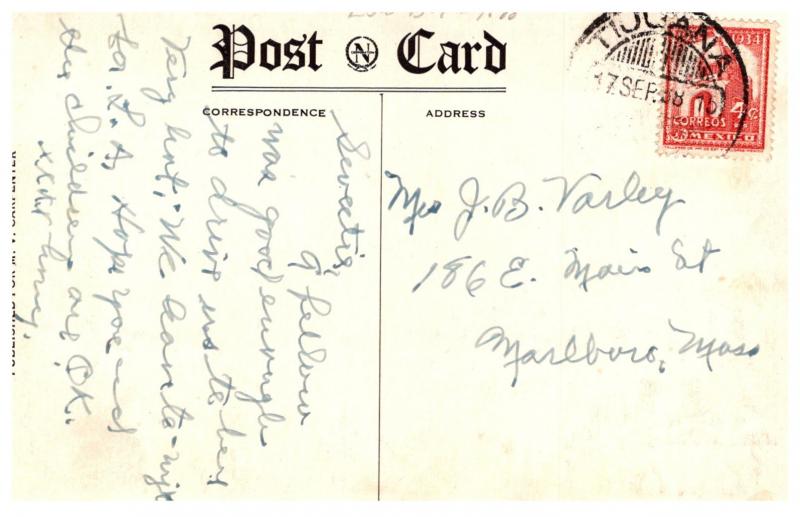 Post Card
CORRESPONDENCE
ADDRESS
TIJUANA
17 SEP. 38
1934
4¢
CORREOS
MEXICO
Mrs J. B. Varley
186 E. Main St
Marlboro, Mass
A fellow
was good enough
to drive us to here
Very hot, We leave to-nyt
for L. A Hope you and
the children are O.K.
PUBLISHED FOR M. V. CARPENTER